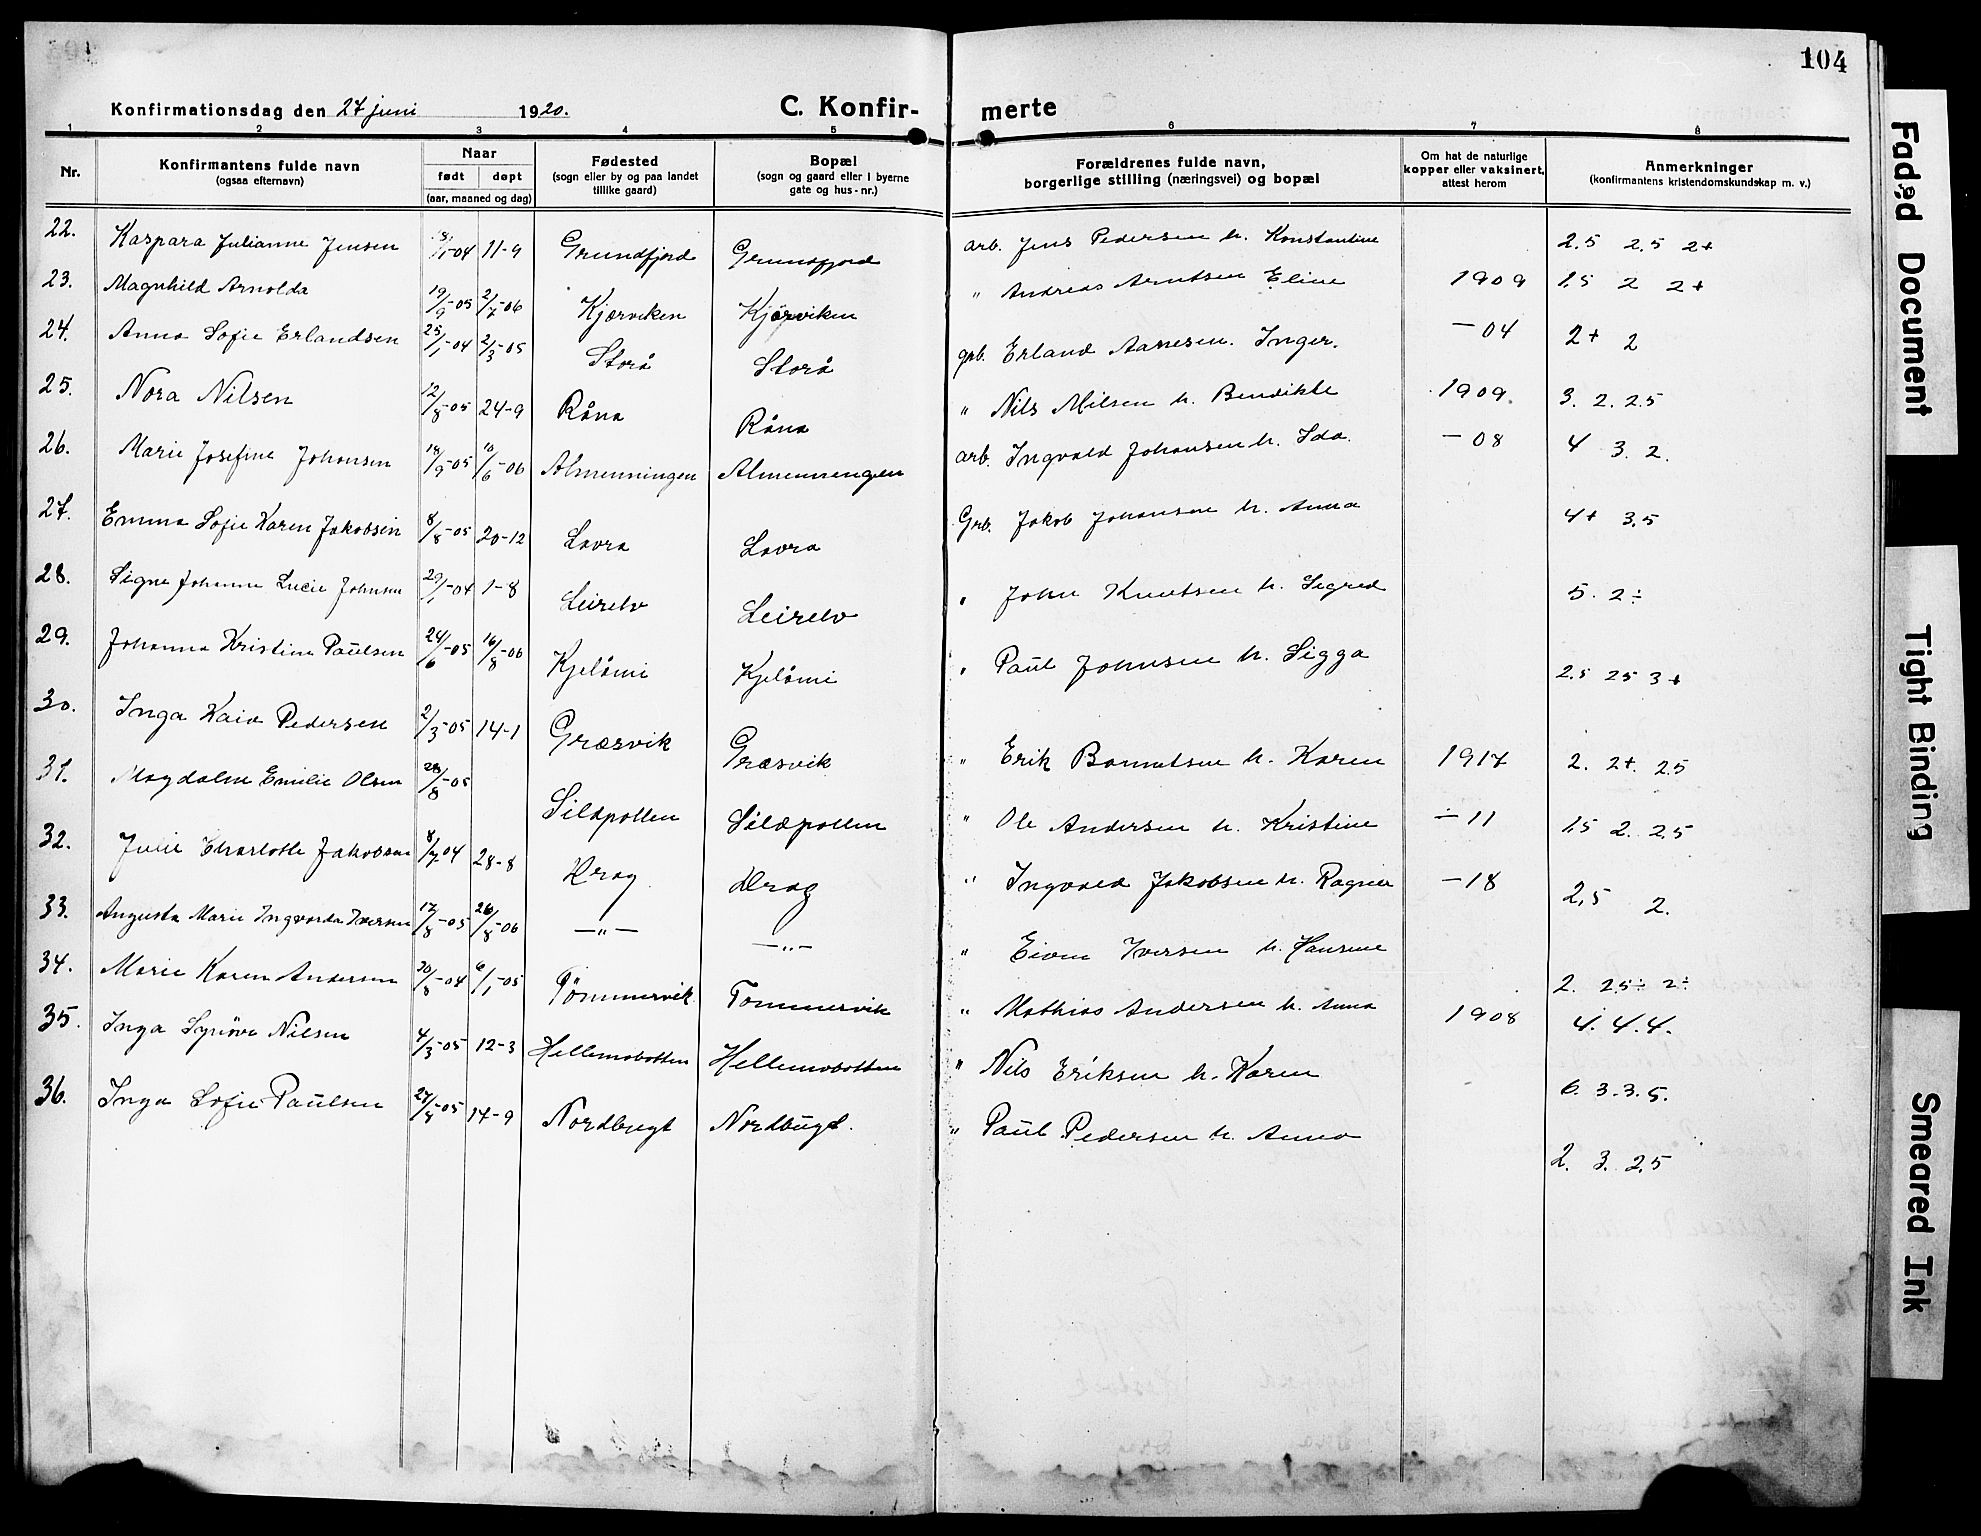 104
Konfirmationsdag den 27 juni 1920.
C. Konfirmerte
1 2 3 4 5 6 7 8
Nr.
Konfirmantens fulde navn
(ogsaa efternavn)
Naar
født døpt
(aar, maaned og dag)
Fødested
(sogn eller by og paa landet
tillike gaard)
Bopæl
(sogn og gaard eller i byerne
gate og hus-nr.)
Forældrenes fulde navn,
borgerlige stilling (næringsvei) og bopæl
Om hat de naturlige
kopper eller vaksinert,
attest herom
Anmerkninger
(konfirmantens kristendomskundskap m. v.)
22. Kaspara Julianne Jensen -04 11-9 Grundfjord Grundfjord arb. Jens Pedersen h. Konstantine 2.5 2.5 2+
23. Magnhild Arnolda 19/9-05 2/7-06 Kjærviken Kjærviken " Andreas Arntsen Eline 1909 1.5 2 2+
24. Anna Sofie Erlandsen 25/1-04 2/3-05 Storå Storå grb. Erland Aanesen. Inger. -04 2+ 2
25. Nora Nilsen 12/8-05 24-9 Råna Råna " Nils Milsen h. Bendikte 1909. 3. 2. 2.5
26. Marie Josefine Johansen 19/9-05 10/6-06 Almenningen Almenningen arb. Ingvald Johansen h. Ida. -08 4 3. 2.
27. Emma Sofie Karen Jakobsen 8/8-05 20-12 Lavra Lavra Grb. Jakob Johansen h. Anna 4+ 3.5
28. Signe Johanne Lucie Johnsen 29/1-04 1-8 Leirelv Leirelv " John Knutsen h. Sigrid 5. 2÷
29. Johanna Kristine Paulsen 24/6-05 16/8-06 Kjelåmi Kjelåmi " Paul Johnsen h. Sigga 2.5 25 3+
30. Inga Kaia Pedersen 2/3-05 14-1 Græsvik Græsvik " Erik h. Karen 1917 2. 2+. 2.5
31. Magdalene Emilie Olsen 28/8-05 Sildpollen Sildpollen " Ole Andersen h. Kristine -11 1.5 2. 2.5
32. Julie Charlotte Jakobsen 8/7-04 28-8 Drag Drag " Ingvald Jakobsen h. Ragna -18 2,5 2.
33. Augusta Marie Ingvarda Iversen 17/8-05 26/8-06 -"- -"- " Eivin Iversen h. Hansine 2. 2.5÷ 2÷
34. Marie Karen Andersen 30/8-04 6/1-05 Tømmervik Tømmervik " Mathias Andersen h. Anna 1908 4. 4. 4.
35. Inga Synöve Nilsen 4/3-05 12-3 Hellemobotten Hellemobotten " Nils Eriksen h. Karen 6. 3. 3.5.
36. Inga Sofie Paulsen -05 14-9 Nordbugt Nordbugt. " Paul Pedersen h. Anna 2. 3. 2.5
Faded Document
Tight Binding
Smeared Ink